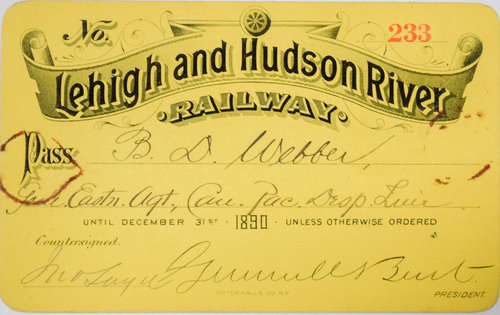 No. 233
Lehigh and Hudson River
RAILWAY
Pass B. D. Webber,
Gen. Eastn. Agt, Can. Pac. Desp. Line
UNTIL DECEMBER 31ST · 1890 · UNLESS OTHERWISE ORDERED
Countersigned.
Grinnell Burt
PRESIDENT.